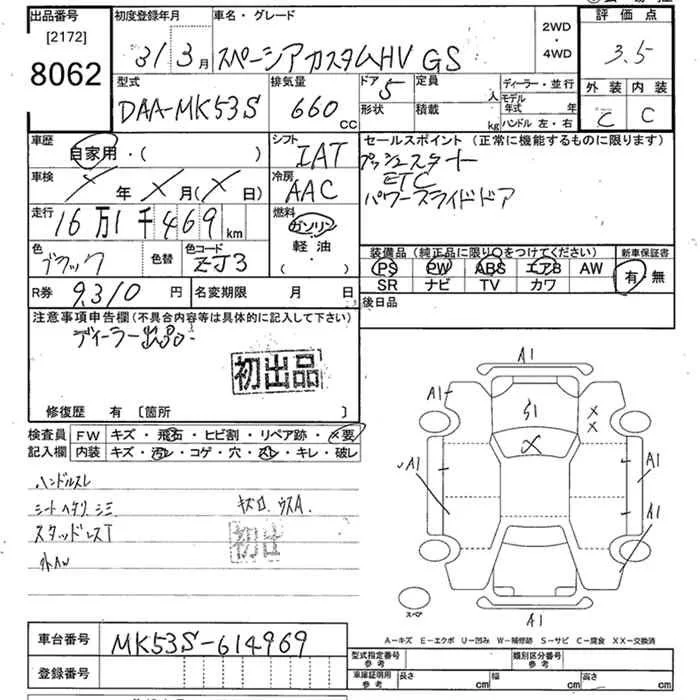 出品番号
[2172]
8062
初度登録年月
31 3月
車名・グレード
スペーシアカスタムHV GS
2WD
・
4WD
評価点
3.5
外装 内装
C C
型式
DAA-MK53S
排気量
660 cc
ドア 5
形状
定員 人
積載 kg
ディーラー・並行
モデル年式 年
ハンドル 左・右
車歴
自家用・( )
車検
年 月( 日)
走行
16万1千469 km
色
ブラック
色替
色コード
ZJ3
シフト
IAT
冷房
AAC
燃料
ガソリン
軽油
( ・ )
セールスポイント(正常に機能するものに限ります)
プッシュスタート
ETC
パワースライドドア
装備品(純正品に限り○をつけてください)
PS PW ABS エアB AW
SR ナビ TV カワ
新車保証書
有 無
R券 9,310 円
名変期限 月 日
後日品
注意事項申告欄(不具合内容等は具体的に記入して下さい)
ディーラー
初出品
修復歴 有 [箇所 ]
検査員
記入欄
FW キズ・飛石・ヒビ割・リペア跡・×要
内装 キズ・汚レ・コゲ・穴・スレ・キレ・破レ
ハンドルスレ
シートヘタリ シミ
キズロ. ウスA.
スタッドレスT
外AW
A1
A1
S1
×
×
×
A1
A1
A1
A1
A1
スペア
A−キズ E−エクボ U−凹み W−補修跡 S−サビ C−腐食 XX−交換済
車台番号 MK53S-614969
登録番号
型式指定番号
参考
類別区分番号
参考
車庫証明用
参考
長さ cm 幅 cm 高さ cm